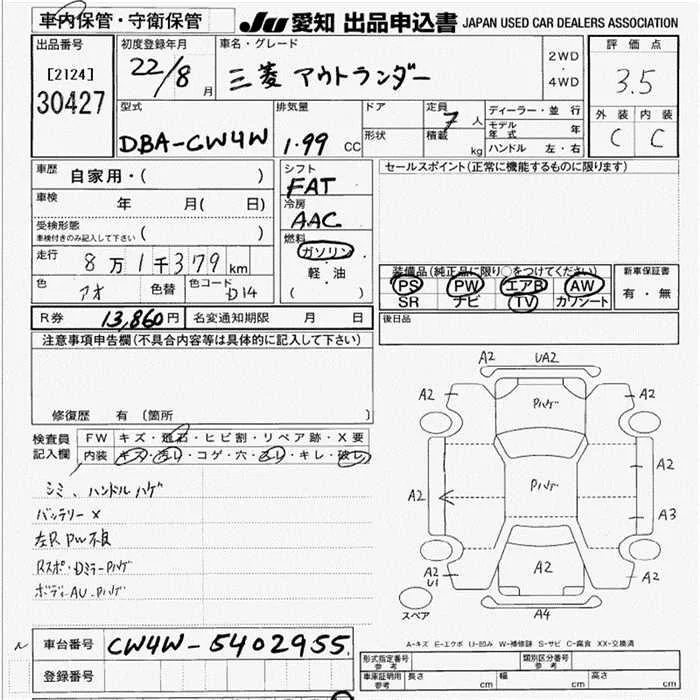 車内保管・守衛保管 JU 愛知 出品申込書 JAPAN USED CAR DEALERS ASSOCIATION
出品番号
[2124]
30427
初度登録年月
22/8 月
車名・グレード
三菱 アウトランダー
2WD
・
4WD
評価点
3.5
外装 内装
C C
型式
DBA-CW4W
排気量
1.99 CC
ドア
形状
定員
7 人
積載
kg
ディーラー・並行
モデル年式 年
ハンドル 左・右
車歴
自家用・( )
車検
年 月( 日)
受検形態
車検付きのみ記入して下さい ( )
走行
8万1千379km
色
アオ
色替
色コード
D14
シフト
FAT
冷房
AAC
燃料
ガソリン
・
軽油
( )
セールスポイント(正常に機能するものに限ります)
装備品(純正品に限り○をつけてください)
PS PW エアB AW
SR ナビ TV カワシート
新車保証書
有・無
後日品
R券 13,860円 名変通知期限 月 日
注意事項申告欄(不具合内容等は具体的に記入して下さい)
修復歴 有 〔箇所 〕
検査員記入欄
FW キズ・飛石・ヒビ割・リペア跡・X要
内装 キズ・汚れ・コゲ・穴・スレ・キレ・破レ
シミ、ハンドルハゲ
バッテリーX
左R PW不良
Rスポ・DミラーPハゲ
ボディAU・Pハゲ
A2 UA2
A2 Pハゲ A2
A2
A2 Pハゲ
A3
A2 U1 A2 A2
スペア
A4
A-キズ E-エクボ U-凹み W-補修跡 S-サビ C-腐食 XX-交換済
車台番号 CW4W-5402955
登録番号
形式指定番号 参考
類別区分番号 参考
車庫証明用 参考
長さ cm 幅 cm 高さ cm